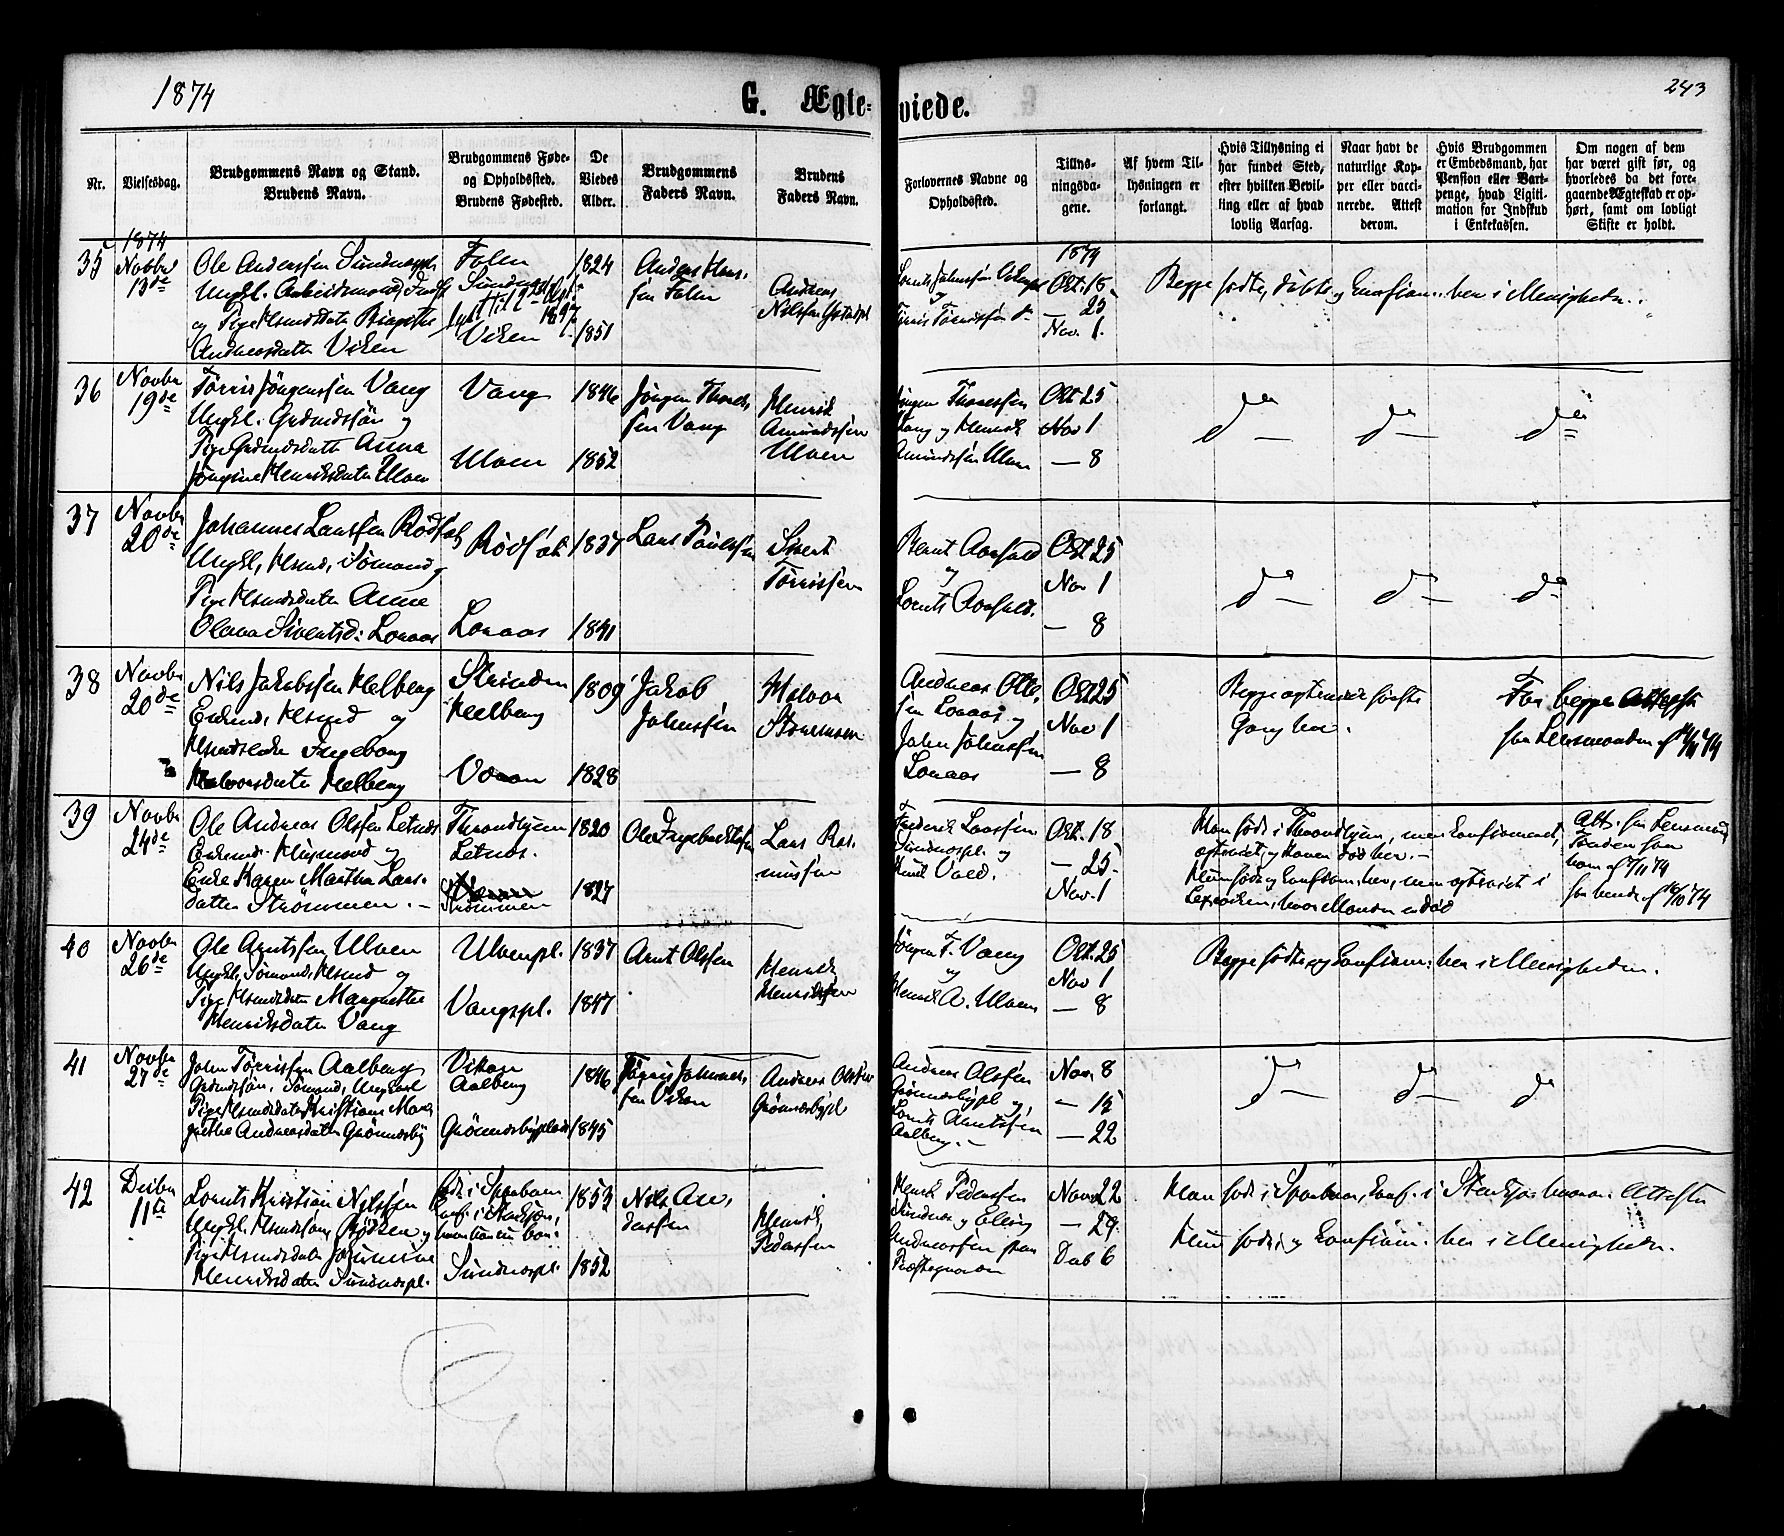 1874
G. Ægte-
viede.
243
Nr.
Vielsesdag.
Brudgommens Navn og Stand.
Brudens Navn.
Brudgommens Føde-
og Opholdssted.
Brudens Fødested.
De
Viedes
Alder.
Brudgommens
Faders Navn.
Brudens
Faders Navn.
Forlovernes Navne og
Opholdssted.
Tillys-
ningsda-
gene.
Af hvem Til-
lysningen er
forlangt.
Hvis Tillysning ei
har fundet Sted,
efter hvilken Bevil-
ling eller af hvad
lovlig Aarsag.
Naar havt de
naturlige Kop-
per eller vacci-
nerede. Attest
derom.
Hvis Brudgommen
er Embedsmand, har
Pension eller Vart-
penge, hvad Ligiti-
mation for Indskud
i Enkekassen.
Om nogen af dem
har været gift før, og
hvorledes da det fore-
gaaende Ægteskab er op-
hørt, samt om lovligt
Skifte er holdt.
35
1874
Novbr
13de
Ole Anderssen Sundnespl
Ungkl. Arbeidsmand,
og Pige Hsmdsdatter Birgithe
Andreasdatter Viken
Folen
Viken
1824
1851
Anders
sen Folen
Andreas
Nilssen
1874
Okt. 18
— 25
Nov. 1.
Begge fødte, døbte og konfirm. her i Menigheden.
36
Novbr
19de
Tørris Jörgenssen Vang
Ungkl. Grdmdssön og
Pige Grdmdsdattr Anna
Jörgine Henriksdatter Ulven
Vang
Ulven
1846
1852
Jörgen Thores-
sen Vang
Henrik
Amundssen
Ulven
Jörgen Thoressen
Vang og Henrik
Amundssen Ulven
Okt 25
Nov 1
— 8
do — do — do
37
Novbr
20de
Johannes Larssen Rödsöt
Ungkl, Hsmd, Sömand og
Pige Hsmdsdatter Anne
Olava Sivertsd: Loraas
Rödsöt
Loraas
1837
1841
Lars Paulssen
Sivert
Tørrissen
Bernt Aarfald
og
Lornts Aarfald.
Okt 25
Nov 1
— 8
do — do — do
38
Novbr
20de
Nils Jakobssen Helberg
Enkemd, Hsmd og
Hsmdsenke Ingeborg
Halvorsdatter Helberg
Strinden
Helberg
Vöran
1809
1828
Jakob
Johnssen
Halvor
Andreas Olse-
sen Loraas og
John Johnssen
Loraas
Okt 25
Nov 1
— 8
Begge optraadte første
Gang her.
For begge Attester
fra Lensmanden af /11 74
39
Novbr
24de
Ole Andreas Olssen Letnes
Enkemd. Husmand og
Enke Karen Martha Lars-
datter Strömmen. –
Throndhjem
Letnes.
Strömmen
1820
1827
Ole Ingebrektssen
Lars Ras-
mussen
Frederik Larssen
Sundnespl. og
Knud Vold.
Okt. 18
— 25
Nov. 1
Han født i Throndhjem, men konfirmeret,
opholdt og Konen død her. –
Hun født og konfirm. her, men ogtraadt i
Lexviken, hvor Manden er død
Att. fra Lensmd
for
ham af /11 74
for hende af /10 74
40
Novbr
26de
Ole Arntssen Ulven
Ungkl, Sömand, Hsmd og
Pige Hsmdsdatter Margrethe
Henriksdatter Vang
Ulvenpl.
Vangspl.
1837
1847
Arnt Olssen
Henrik
Henrikssen
Jörgen T. Vang
og
Henrik A. Ulven
Okt. 25
Nov 1
— 8
Begge fødte og konfirm. her i Menigheden.
41
Novbr
27de
John Tørrissen Aalberg
Grdmdssön, Sömand, Ungkarl
Pige Hsmdsdatter Kristiane Mar-
grethe Andreasdatter Grönnesby
Aalberg
Grönnesbyplads
1846
1845
Tørris Johannes-
sen Viken
Andreas Olssen
Grönnesbypl
Andreas Olssen
Grönnesbypl og
Lornts Arntssen
Aalberg. –
Nov. 8
— 15
— 22
do — do — do
42
Decbr
11te
Lornts Kristian Nilssen
Ungkl. Hsmdssön, Bødker og
Pige Hsmdsdatter
Henriksdatter Sundnespl.
född i Sparboen
Konf. i Stenkjær,
Sundnespl
1853
1852
Nils An-
derssen
Henrik
Pederssen
Henrik Pederssen
Sundnes og Elling
Andreassen fra
Nov 22
— 29.
Dcb 6
Han født i Sparboen, konf. i Stenkjær Attester
Hun født og konfirm. her i Menigheden.